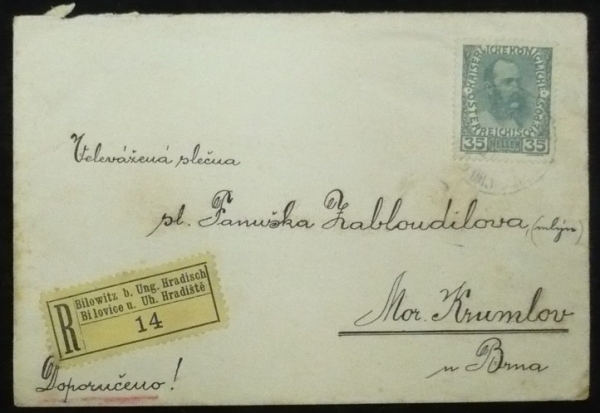 KAISERLICHE KÖNIGLICHE
ÖSTERREICHISCHE POST
35 HELLER 35
Velevážená slečna
sl. Fanuška Zabloudilova, (mlýn)
R
Bilowitz b. Ung. Hradisch
Bilovice u. Uh. Hradiště
14
Mor. Krumlov
u Brna
Doporučeno!